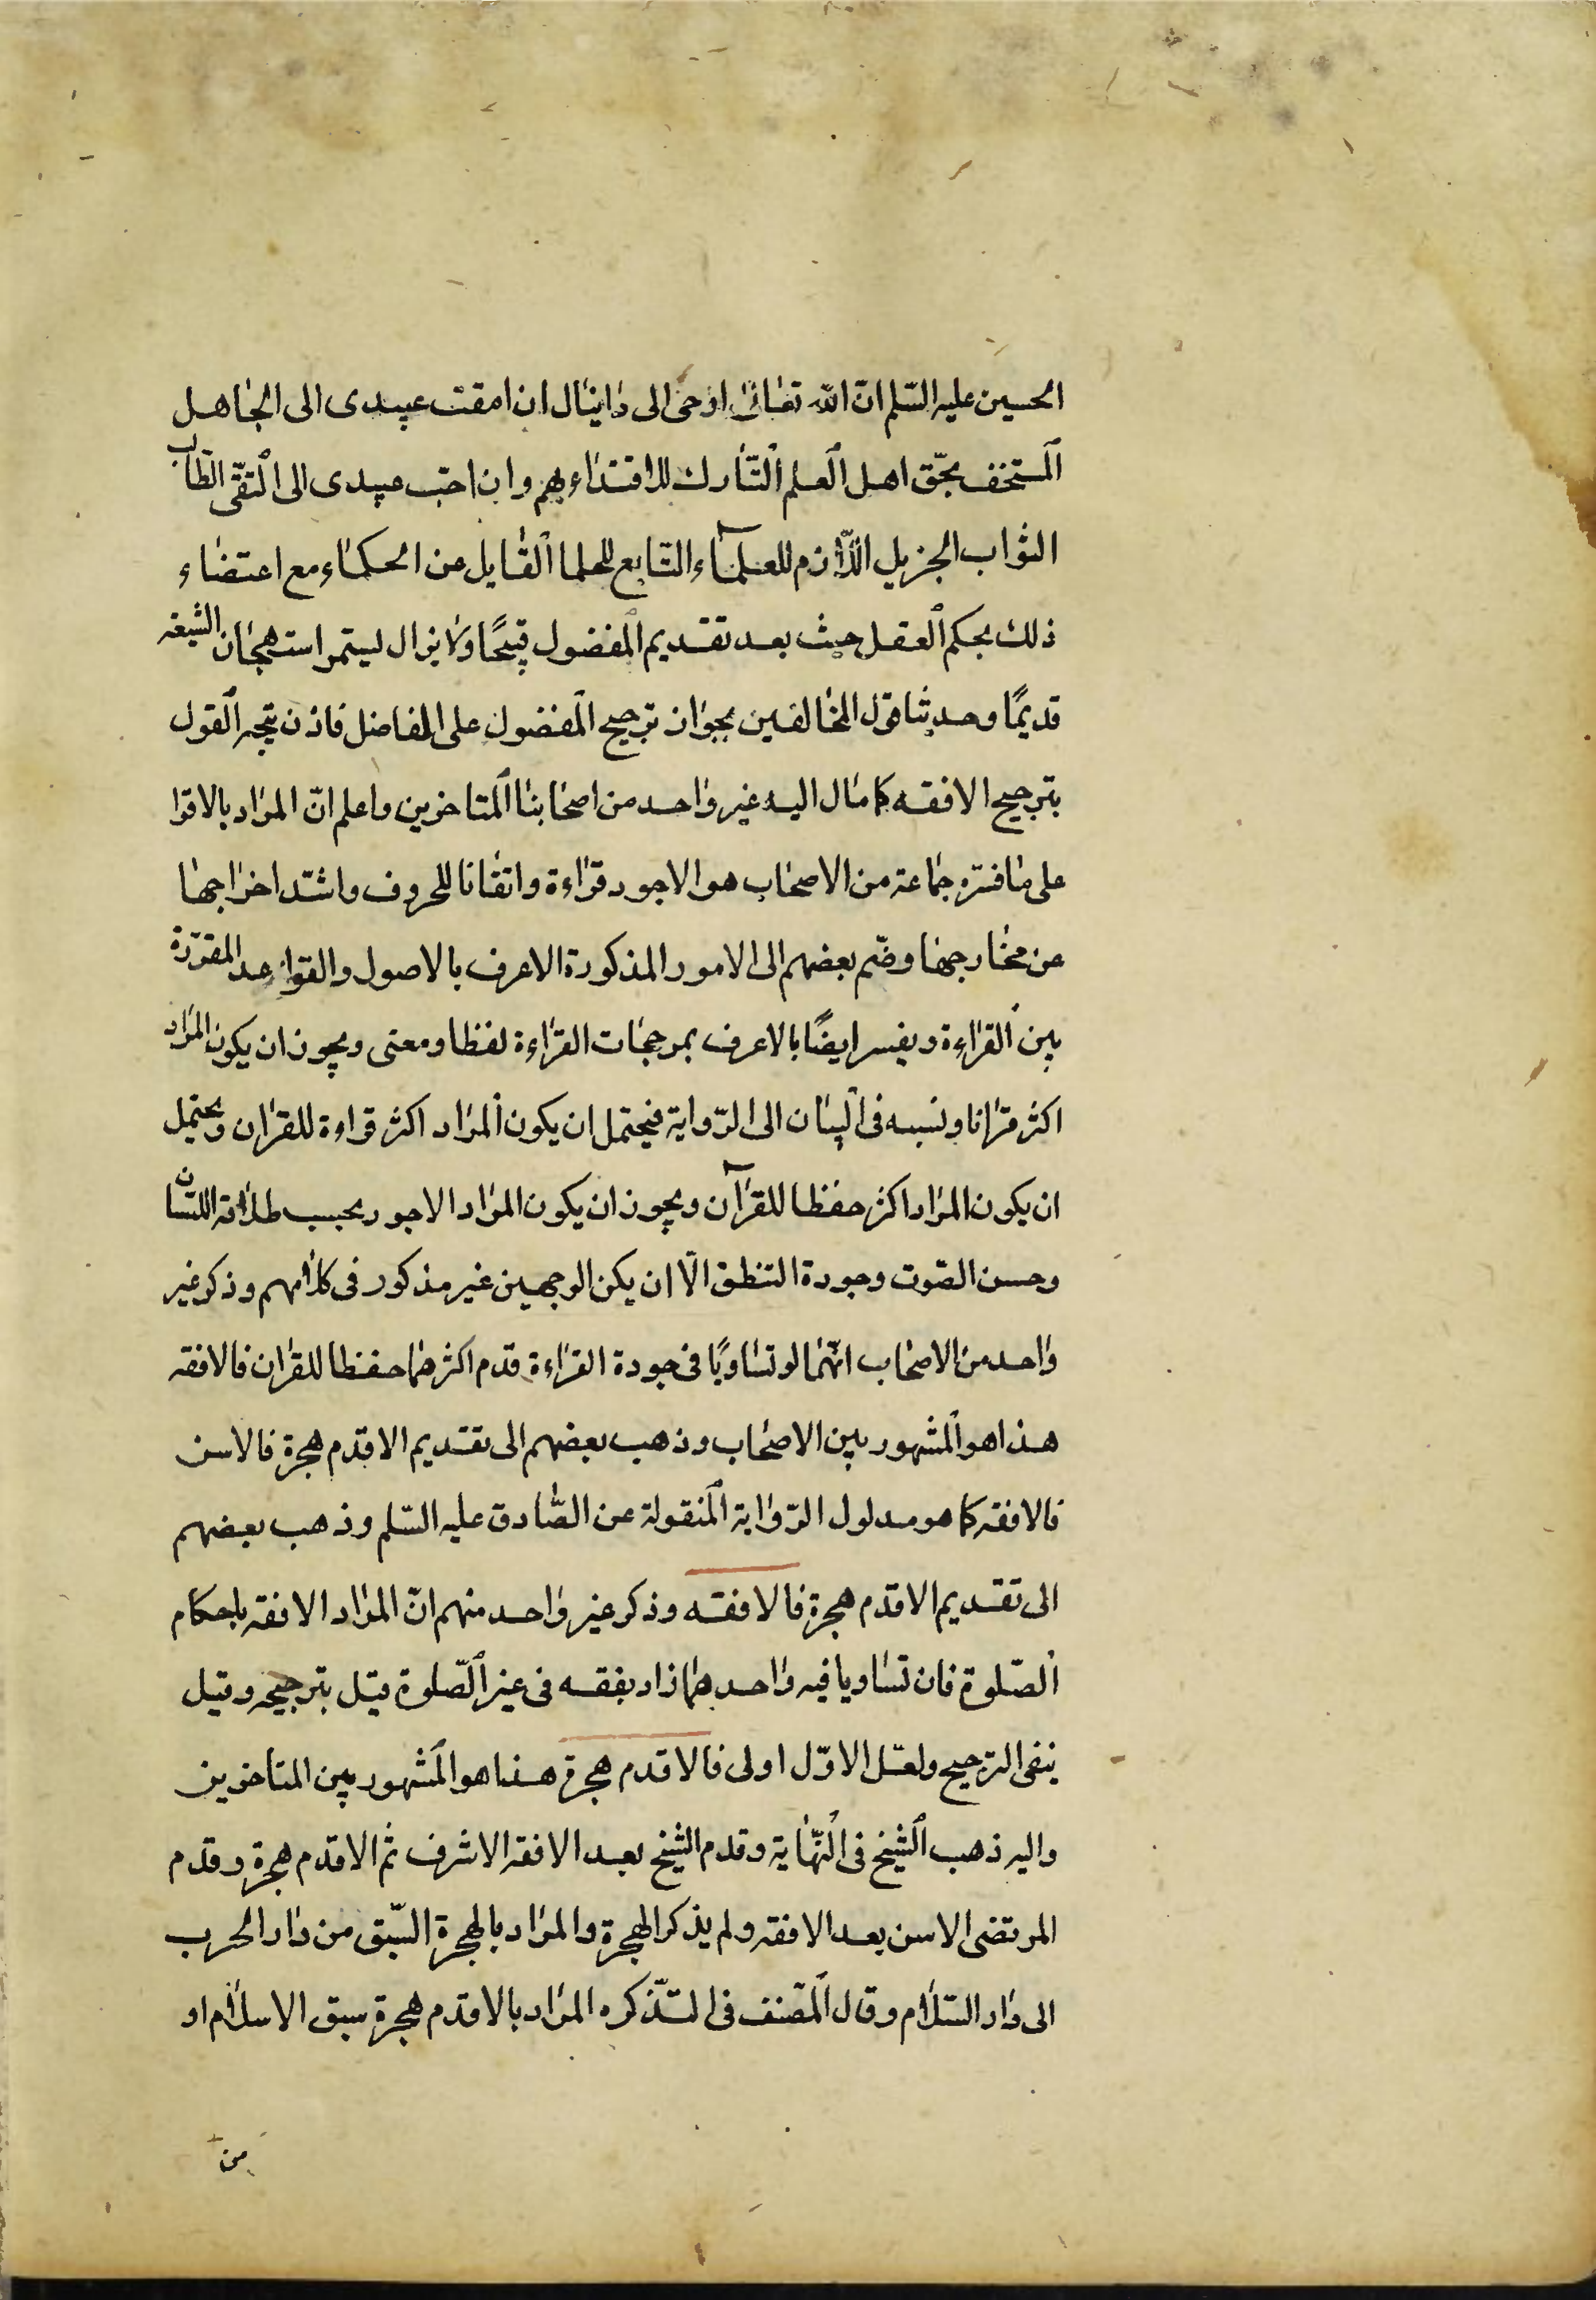 الحسين عليه السّلم انّ الله تعالى اوحى الى دانيال ان امقت عبيدى الى الجاهل
المستخف بحّق اهل العلم التّارك للاقتداء بهم وان احب عبيدى الى التقّى الطالب
الثواب الجزيل اللّازم للعلماء التّابع للحلما القايل عن الحكماء مع اعتضاء
ذلك بحكم العقل حيث بعد تقديم المفضول قبيحًا ولا يزال ليتمر استهجان الشيعه
قديمًا وحديثا قول المخالفين بجواز ترجيح المفضول على الفاضل فاذن يتجه القول
بترجيح الافقه كما مال اليه غير واحد من اصحابنا المتاخرين واعلم انّ المراد بالاقرا
على ما فسّره جماعة من الاصحاب هو الاجود قراءة واتقانا للحروف واشدّ اخراجها
من مخارجها وضّم بعضهم الى الامور المذكورة الاعرف بالاصول والقواعد المقرّرة
بين القراءة ويفسر ايضًا بالاعرف بمرجحات القراءة لفظا ومعنى ويجوز ان يكون المراد
اكثر قرانا ونسبه فى البيان الى الرّواية فيحتمل ان يكون المراد اكثر قراءة للقران ويحتمل
ان يكون المراد اكثر حفظا للقرآن ويجوز ان يكون المراد الاجود بحسب طلاقة اللسّان
وحسن الصّوت وجودة التنطق الّا ان يكن الوجهين غير مذكور فى كلامهم وذكر غير
واحد من الاصحاب انّهما لو تساويًا فى جودة القراءة قدم اكثرهما حفظا للقران فالافقه
هذا هو المشهور بين الاصحاب وذهب بعضهم الى تقديم الاقدم هجرة فالاسن
فالافقه كما هو مدلول الرّواية المنقولة عن الصّادق عليه السّلم وذهب بعضهم
الى تقديم الاقدم هجرة فالافقه وذكر غير واحد منهم انّ المراد الافقه باحكام
الصّلوة فان تساويا فيه واحدهما زاد بفقه فى غير الصّلوة قيل بترجيحه وقيل
بنفى الترجيح ولعّل الاوّل اولى فالاقدم هجرة هذا هو المشهور بين المتاخرين
واليه ذهب الشيخ فى النّهاية وقدم الشيخ بعد الافقه الاشرف ثم الاقدم هجرة وقدم
المرتضى الاسن بعد الافقه ولم يذكر الهجرة والمراد بالهجرة السّبق من دار الحرب
الى دار السّلام وقال المصّنف فى التّذكره المراد بالاقدم هجرة سبق الاسلام او
من